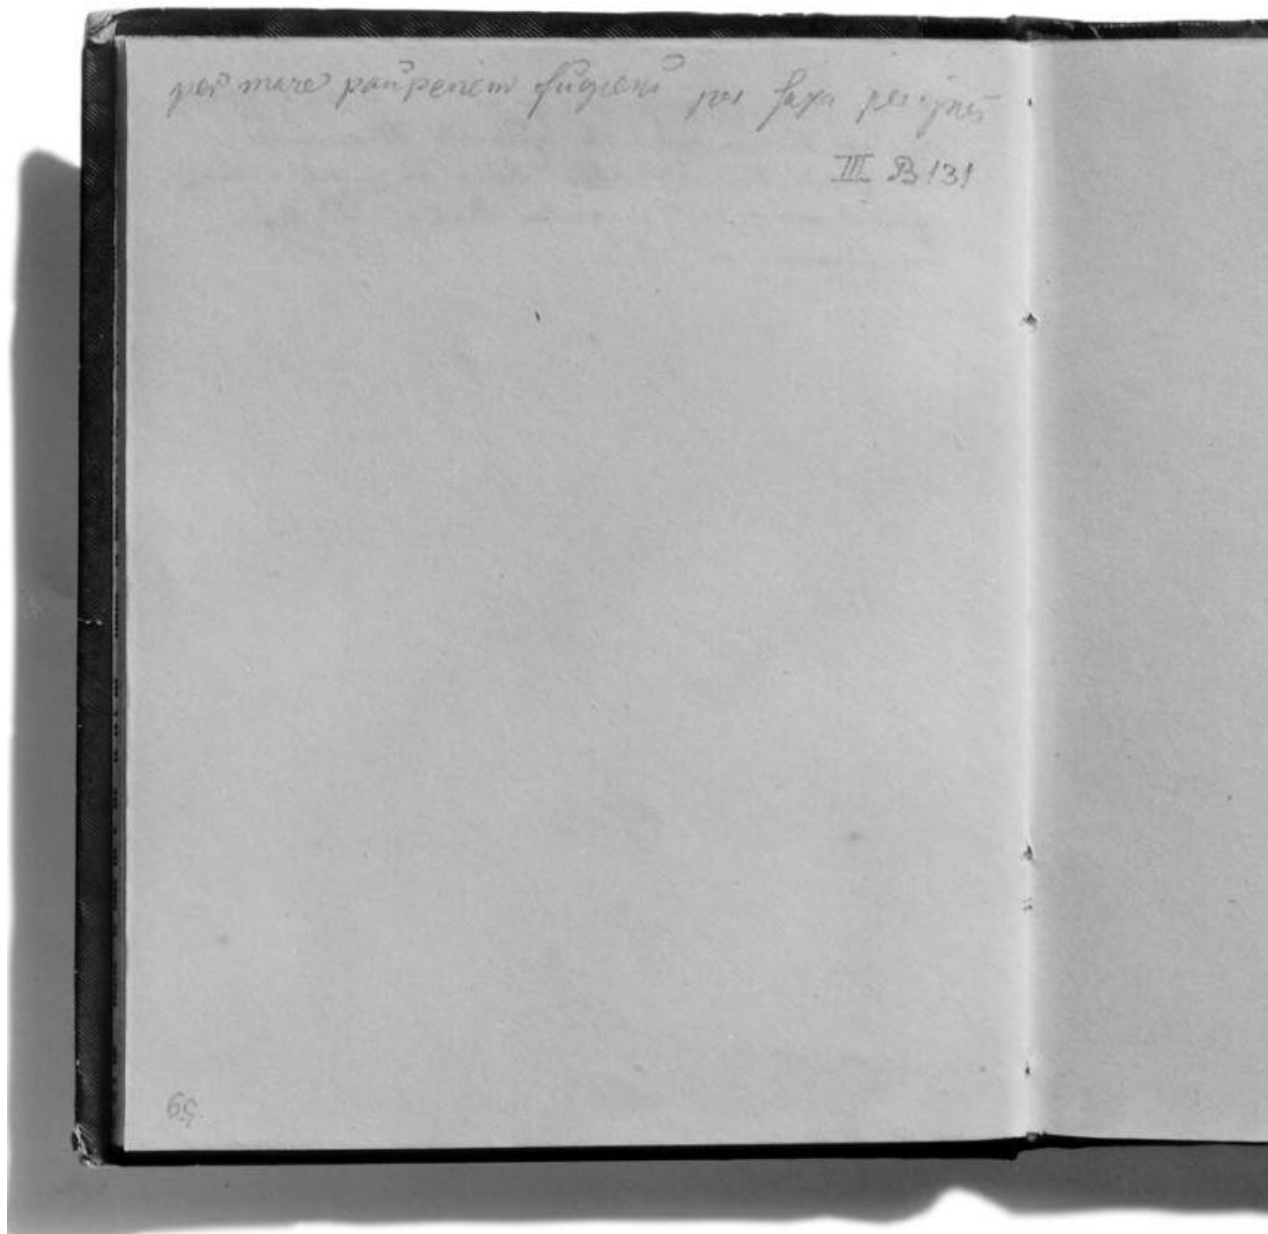 per mare pauperiem fugiens per saxa per ignes
III B 131
59